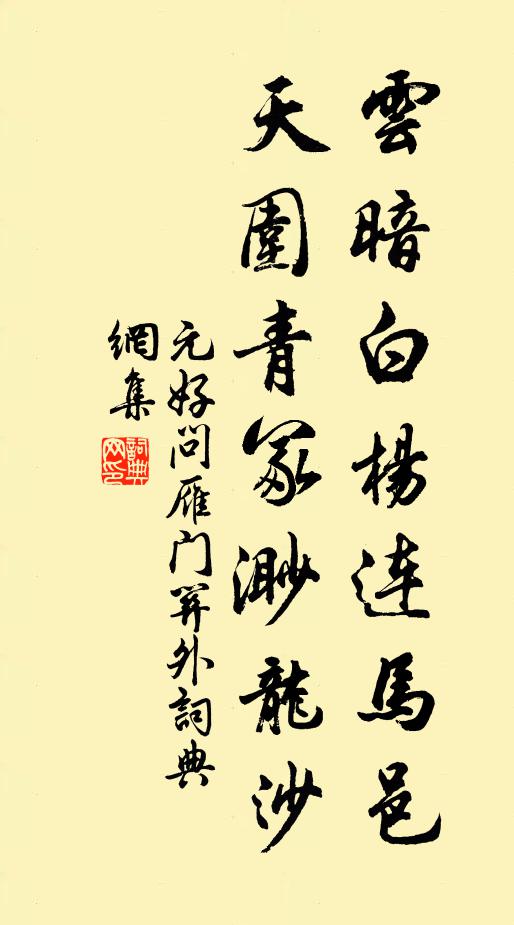 雲暗白楊連馬邑
天圍青冢渺龍沙
元好问雁门关外詞典
網集
詞典网印